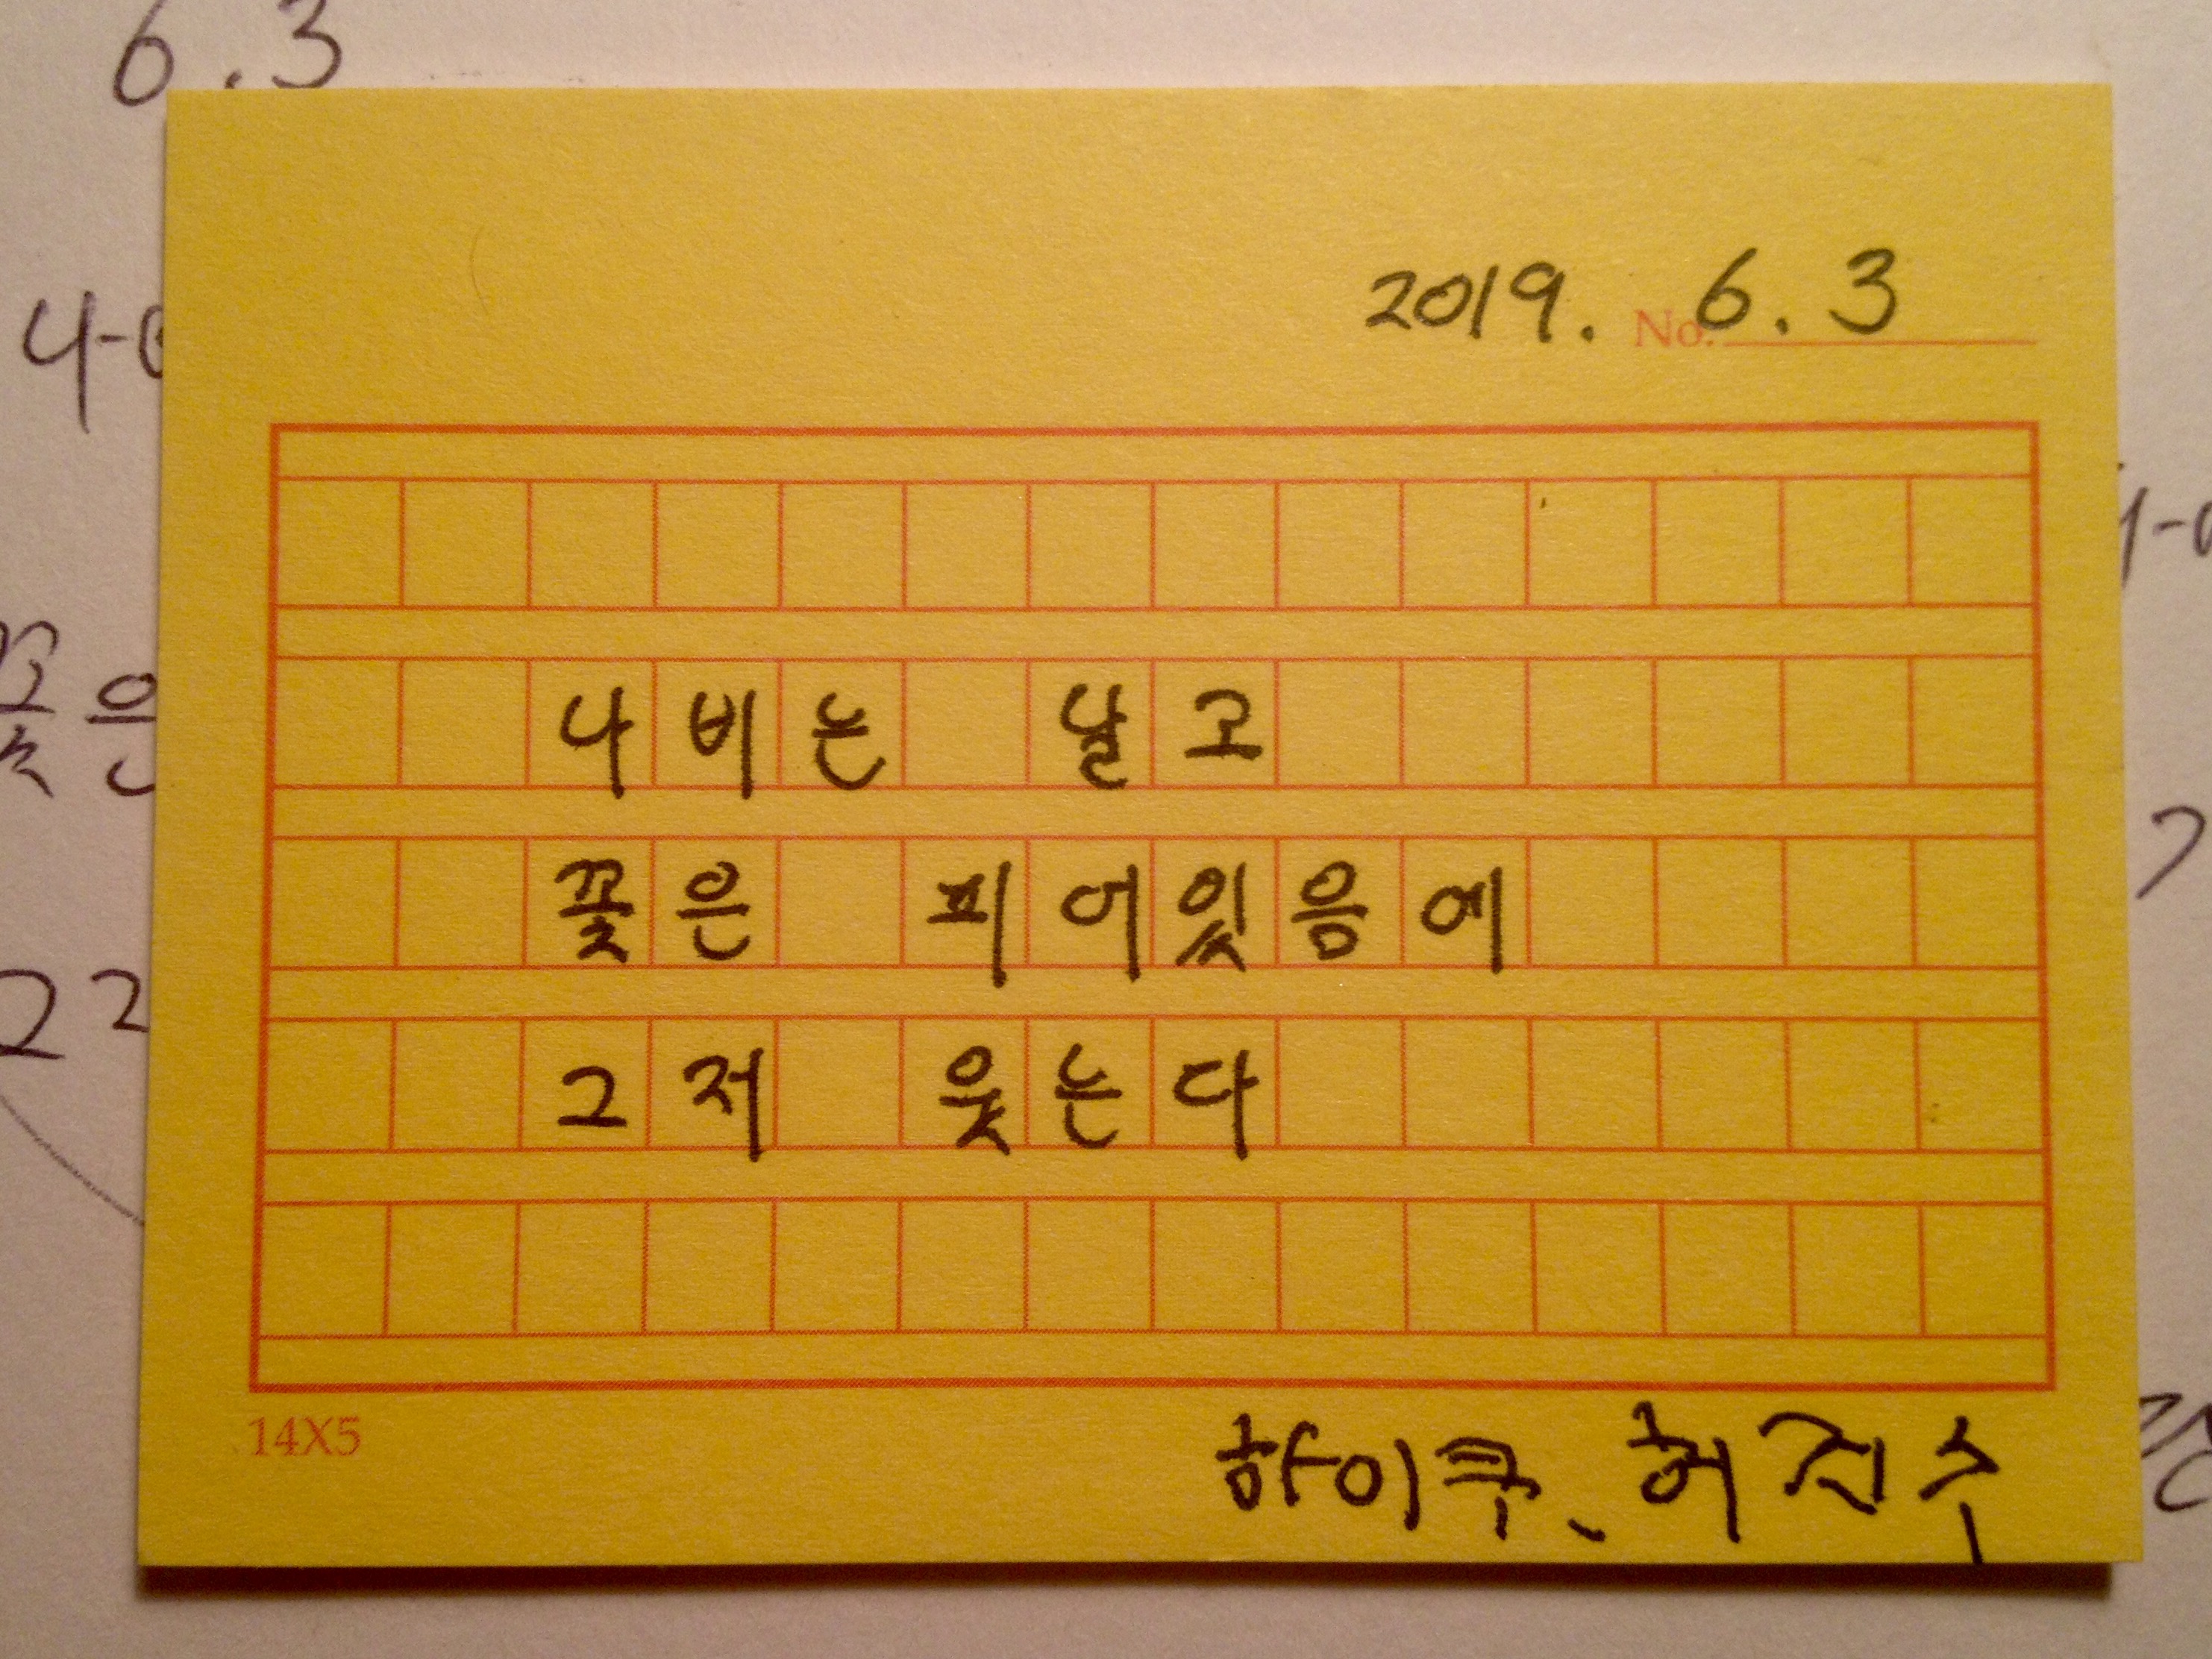 6.3
2019. No. 6.3
4-
꽃은
나비는 날고
꽃은 피어있음에
그저 웃는다
22
14X5
하이쿠、허진수